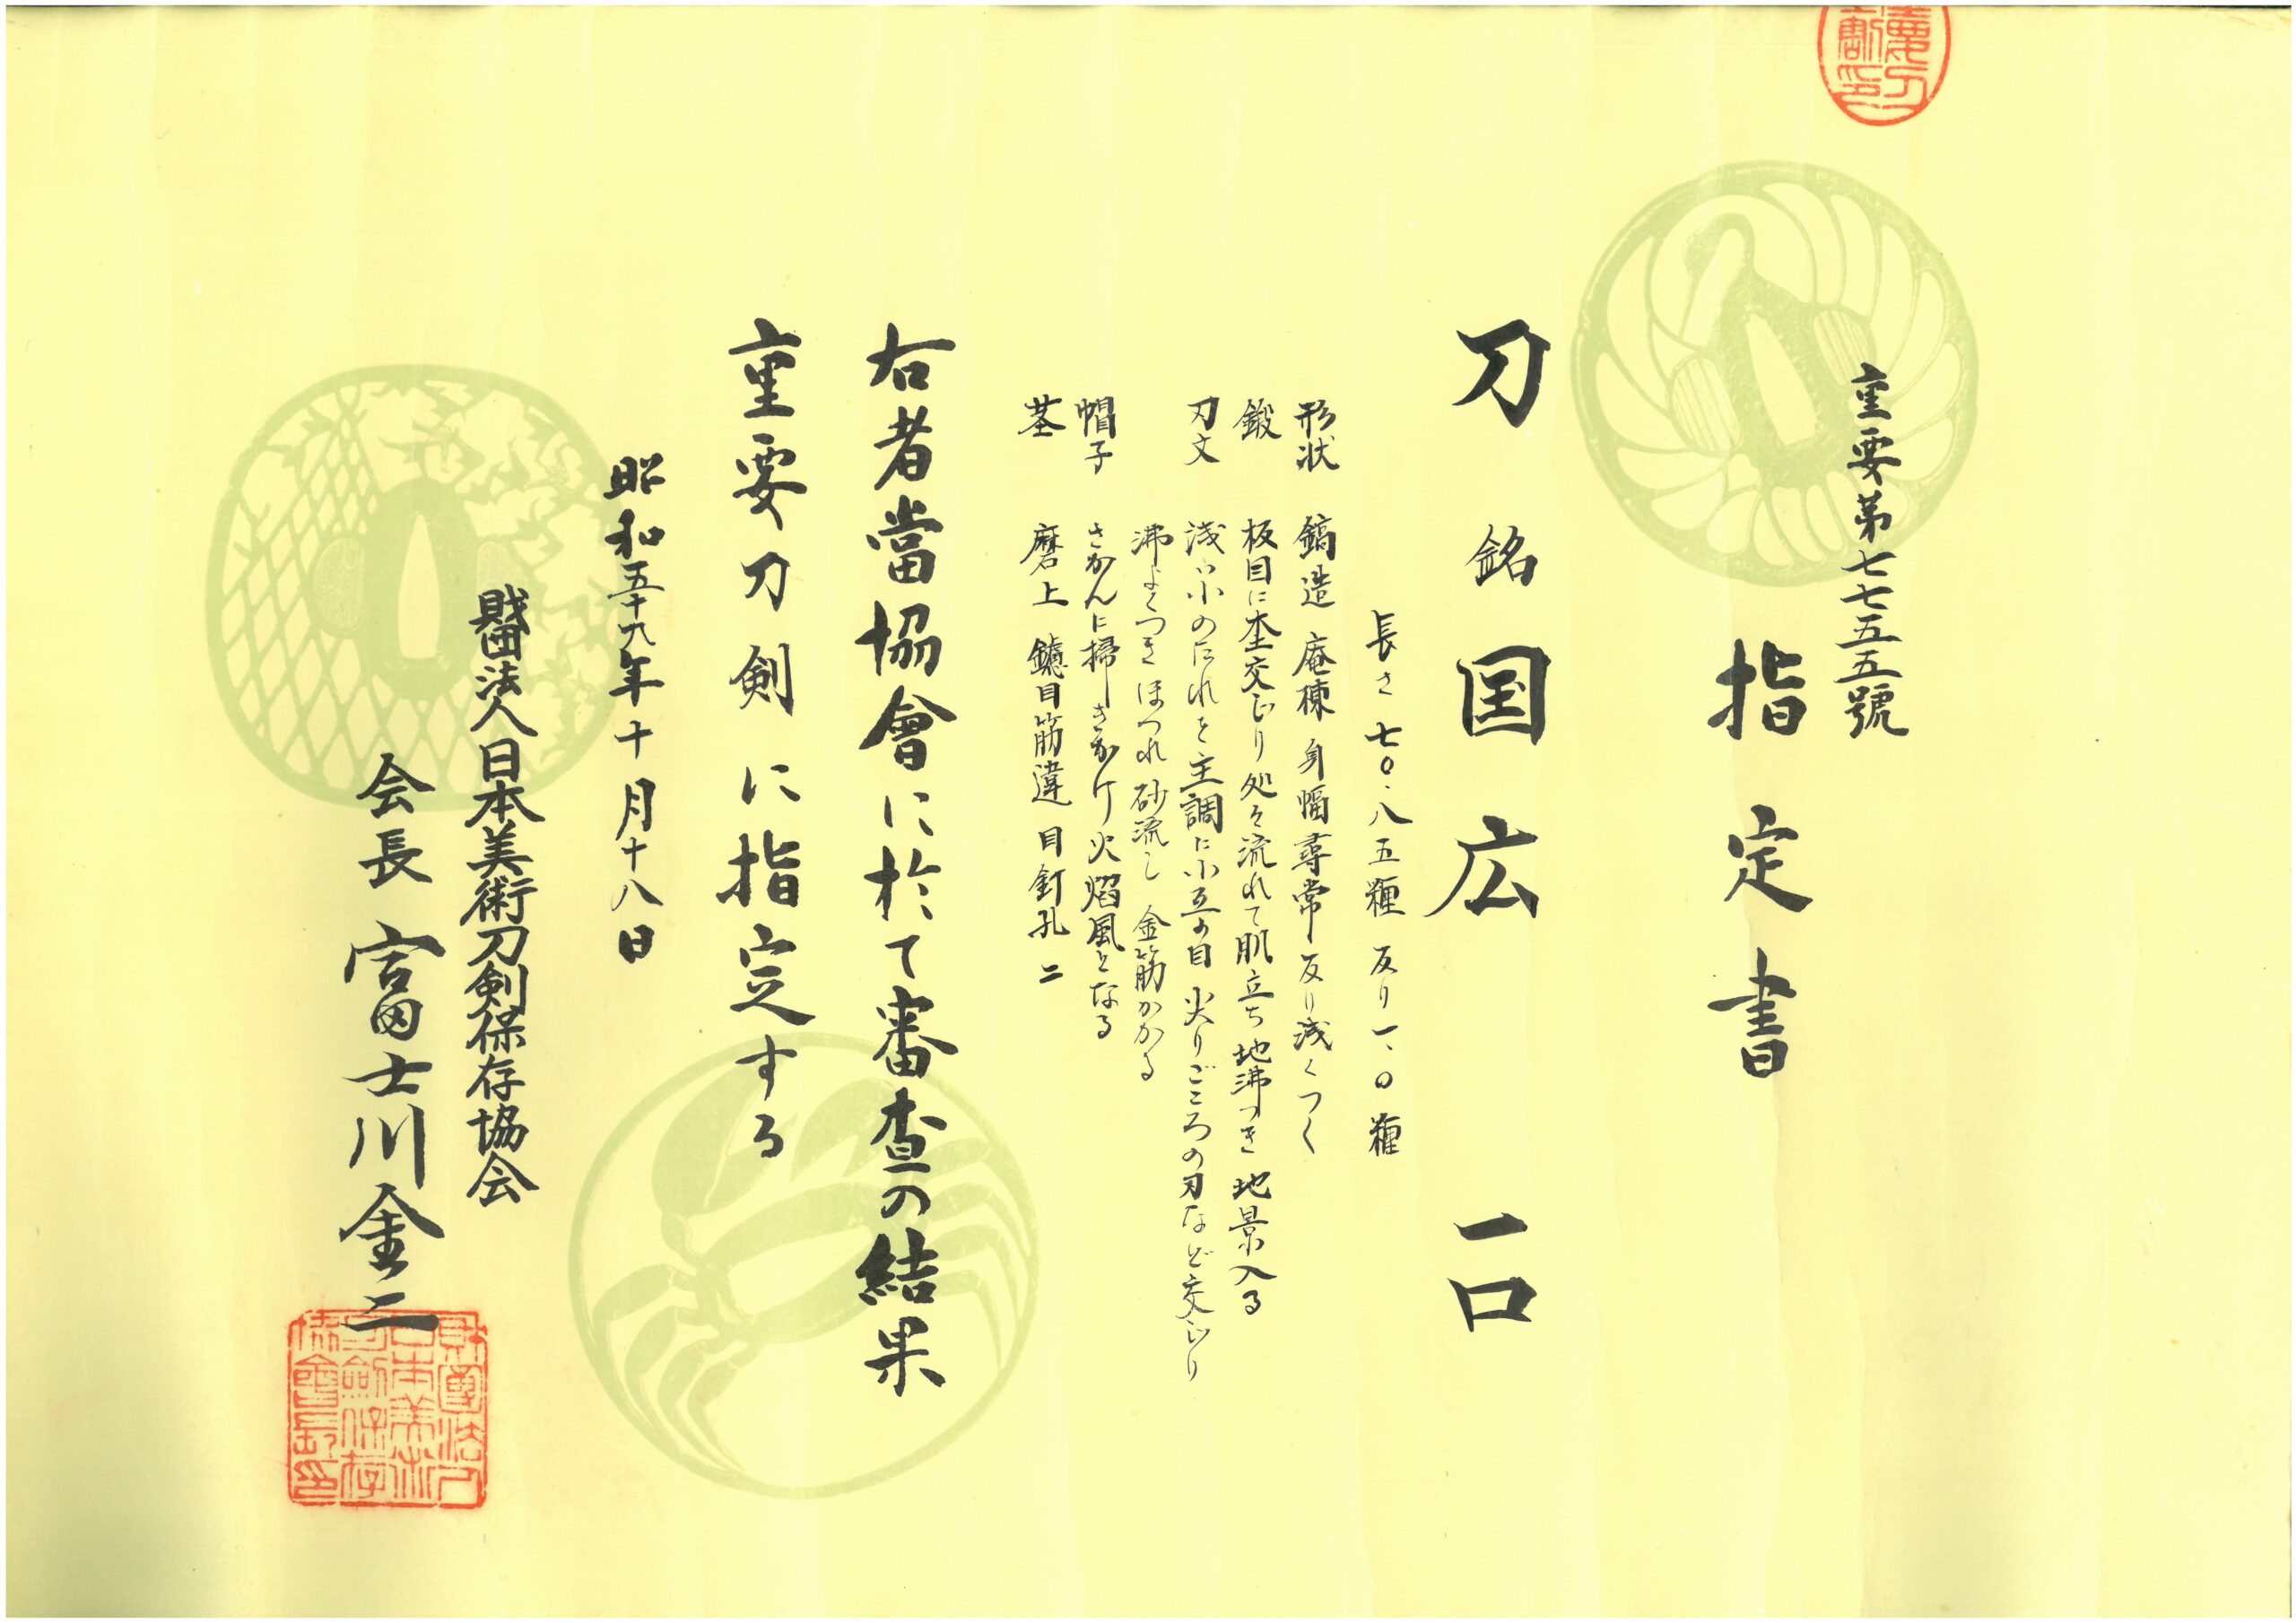 重要第七七五五號
指定書
刀 銘 国広 一口
長さ 七〇・八五糎 反り 一・〇糎
形状 鎬造 庵棟 身幅尋常 反り浅くつく
鍛 板目に杢交じり 処々流れて肌立ち 地沸つき 地景入る
刃文 浅い小のたれを主調に小互の目 尖りごころの刃など交じり
沸よくつき ほつれ 砂流し 金筋かかる
帽子 さかんに掃きかけ 火焔風となる
茎 磨上 鑢目筋違 目釘孔二
右者當協會に於て審査の結果
重要刀剣に指定する
昭和五十九年十月十八日
財団法人日本美術刀剣保存協会
会長 富士川金二
財團法人日本美術刀劍保存協會長印